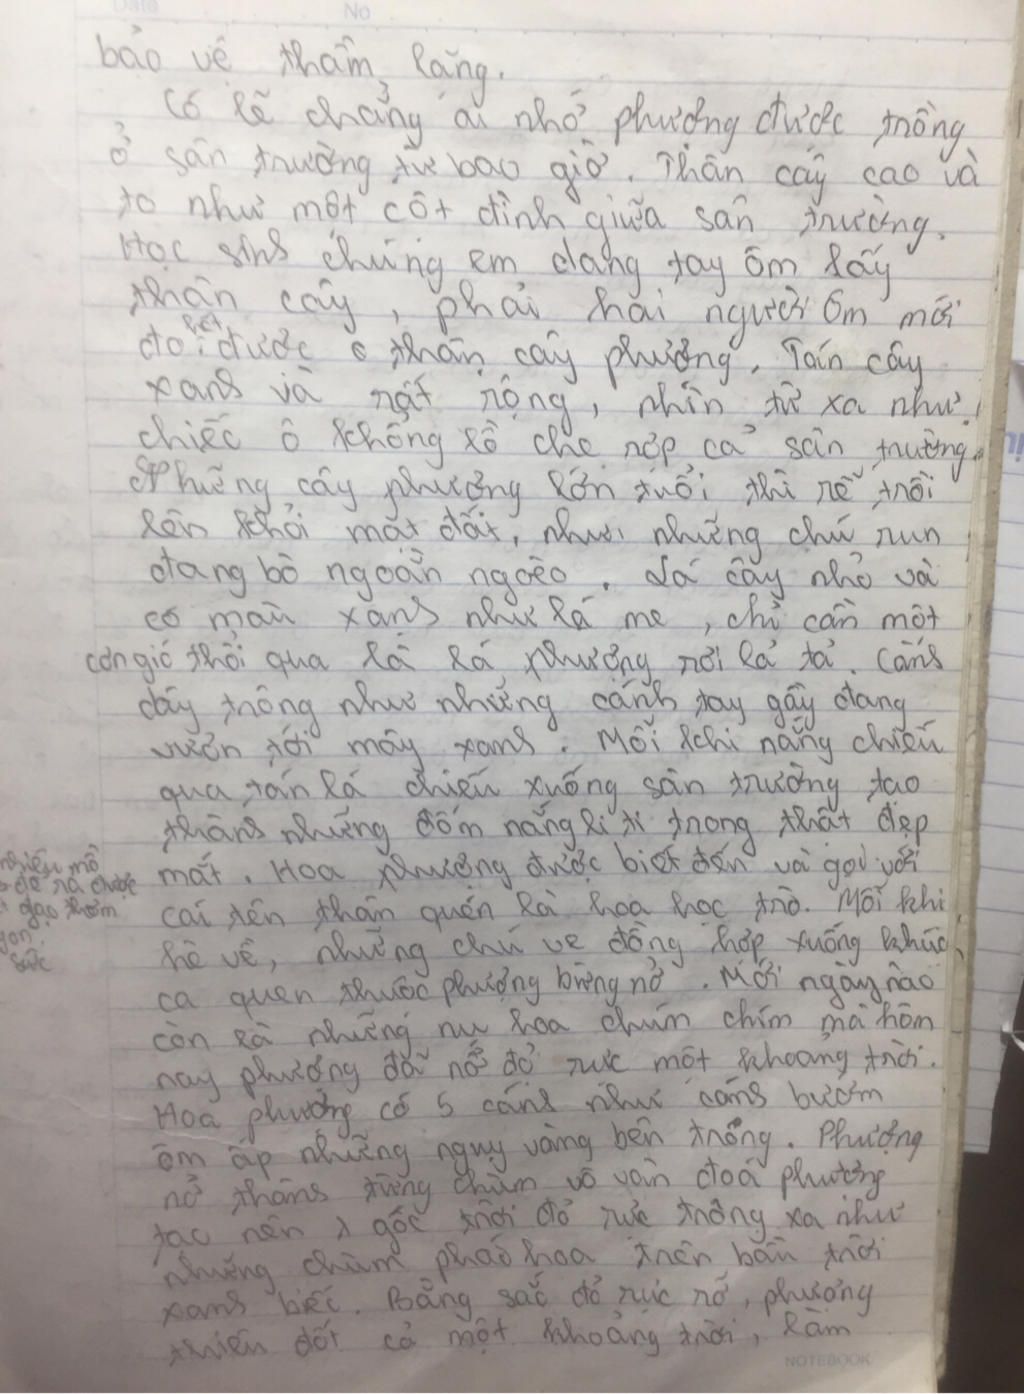 Date No
bảo vê thầm lăng.
Có lẽ chẳng ai nhớ phượng được trồng
ở sân trường từ bao giờ. Thân cây cao và
to như một cột đình giữa sân trường.
Học sinh chúng em dang tay ôm lấy
thân cây, phải hai người ôm mới
hết được thân cây phượng. Tán cây
xanh và rất rộng, nhìn từ xa như
chiếc ô khổng lồ che rợp cả sân trường.
Những cây phượng lớn tuổi thì rễ trồi
lên khỏi mặt đất, như những chú run
đang bò ngoằn ngoèo. Lá cây nhỏ và
có màu xanh như lá me, chỉ cần một
cơn gió thổi qua là lá phượng rơi lả tả. Cành
cây trông như những cánh tay gầy đang
vươn tới mây xanh. Mỗi khi nắng chiếu
qua tán lá chiếu xuống sân trường tạo
thành những đốm nắng li ti trong thật đẹp
mắt. Hoa phượng được biết đến và gọi với
cái tên thân quen là hoa học trò. Mỗi khi
hè về, những chú ve đồng hợp xuống khúc
ca quen thuộc phượng bừng nở. Mới ngày nào
còn là những nụ hoa chúm chím mà hôm
nay phượng đã nở đỏ rực một khoảng trời.
Hoa phượng có 5 cánh như cánh bướm
ôm ấp những nguỵ vàng bên trong. Phượng
nở thành từng chùm vô vàn đoá phượng
tạo nên 1 gốc trời đỏ rực trông xa như
những chùm pháo hoa trên bầu trời
xanh biếc. Bằng sắc đỏ rực rỡ, phượng
thiêu đốt cả một khoảng trời, làm
NOTEBOOK